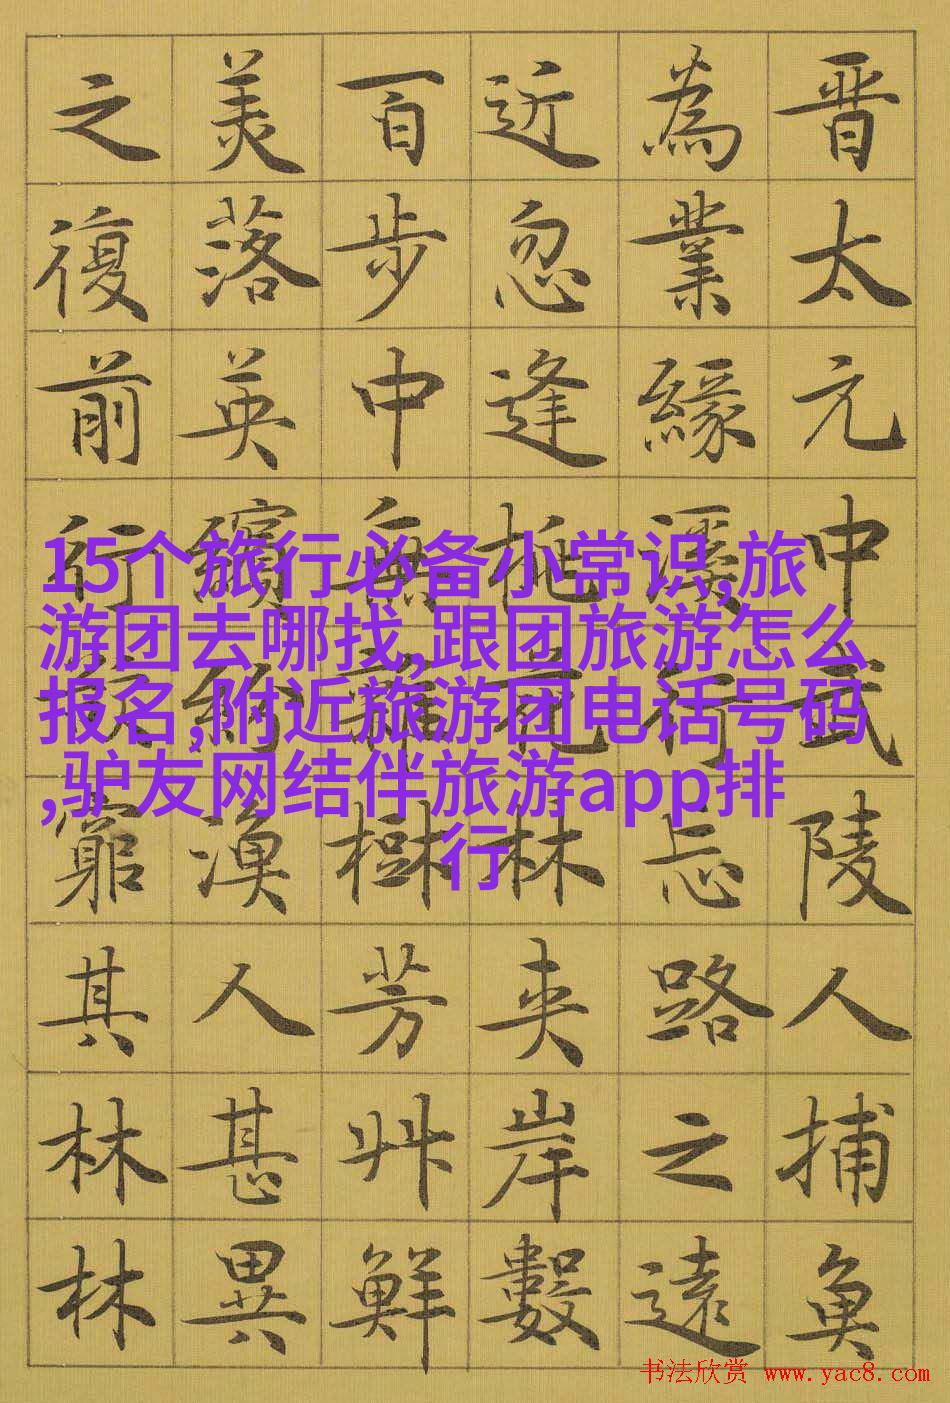 晋太元中武陵人捕魚
為業緣溪行忘路之遠
近忽逢桃花林夾岸數
百步中無雜樹芳艸鮮
美落英繽紛漁人甚異
之復前行欲窮其林林
15个旅行必备小常识,旅
游团去哪找,跟团旅游怎么
报名,附近旅游团电话号码
,驴友网结伴旅游app排
行
书法欣赏 www.yac8.com